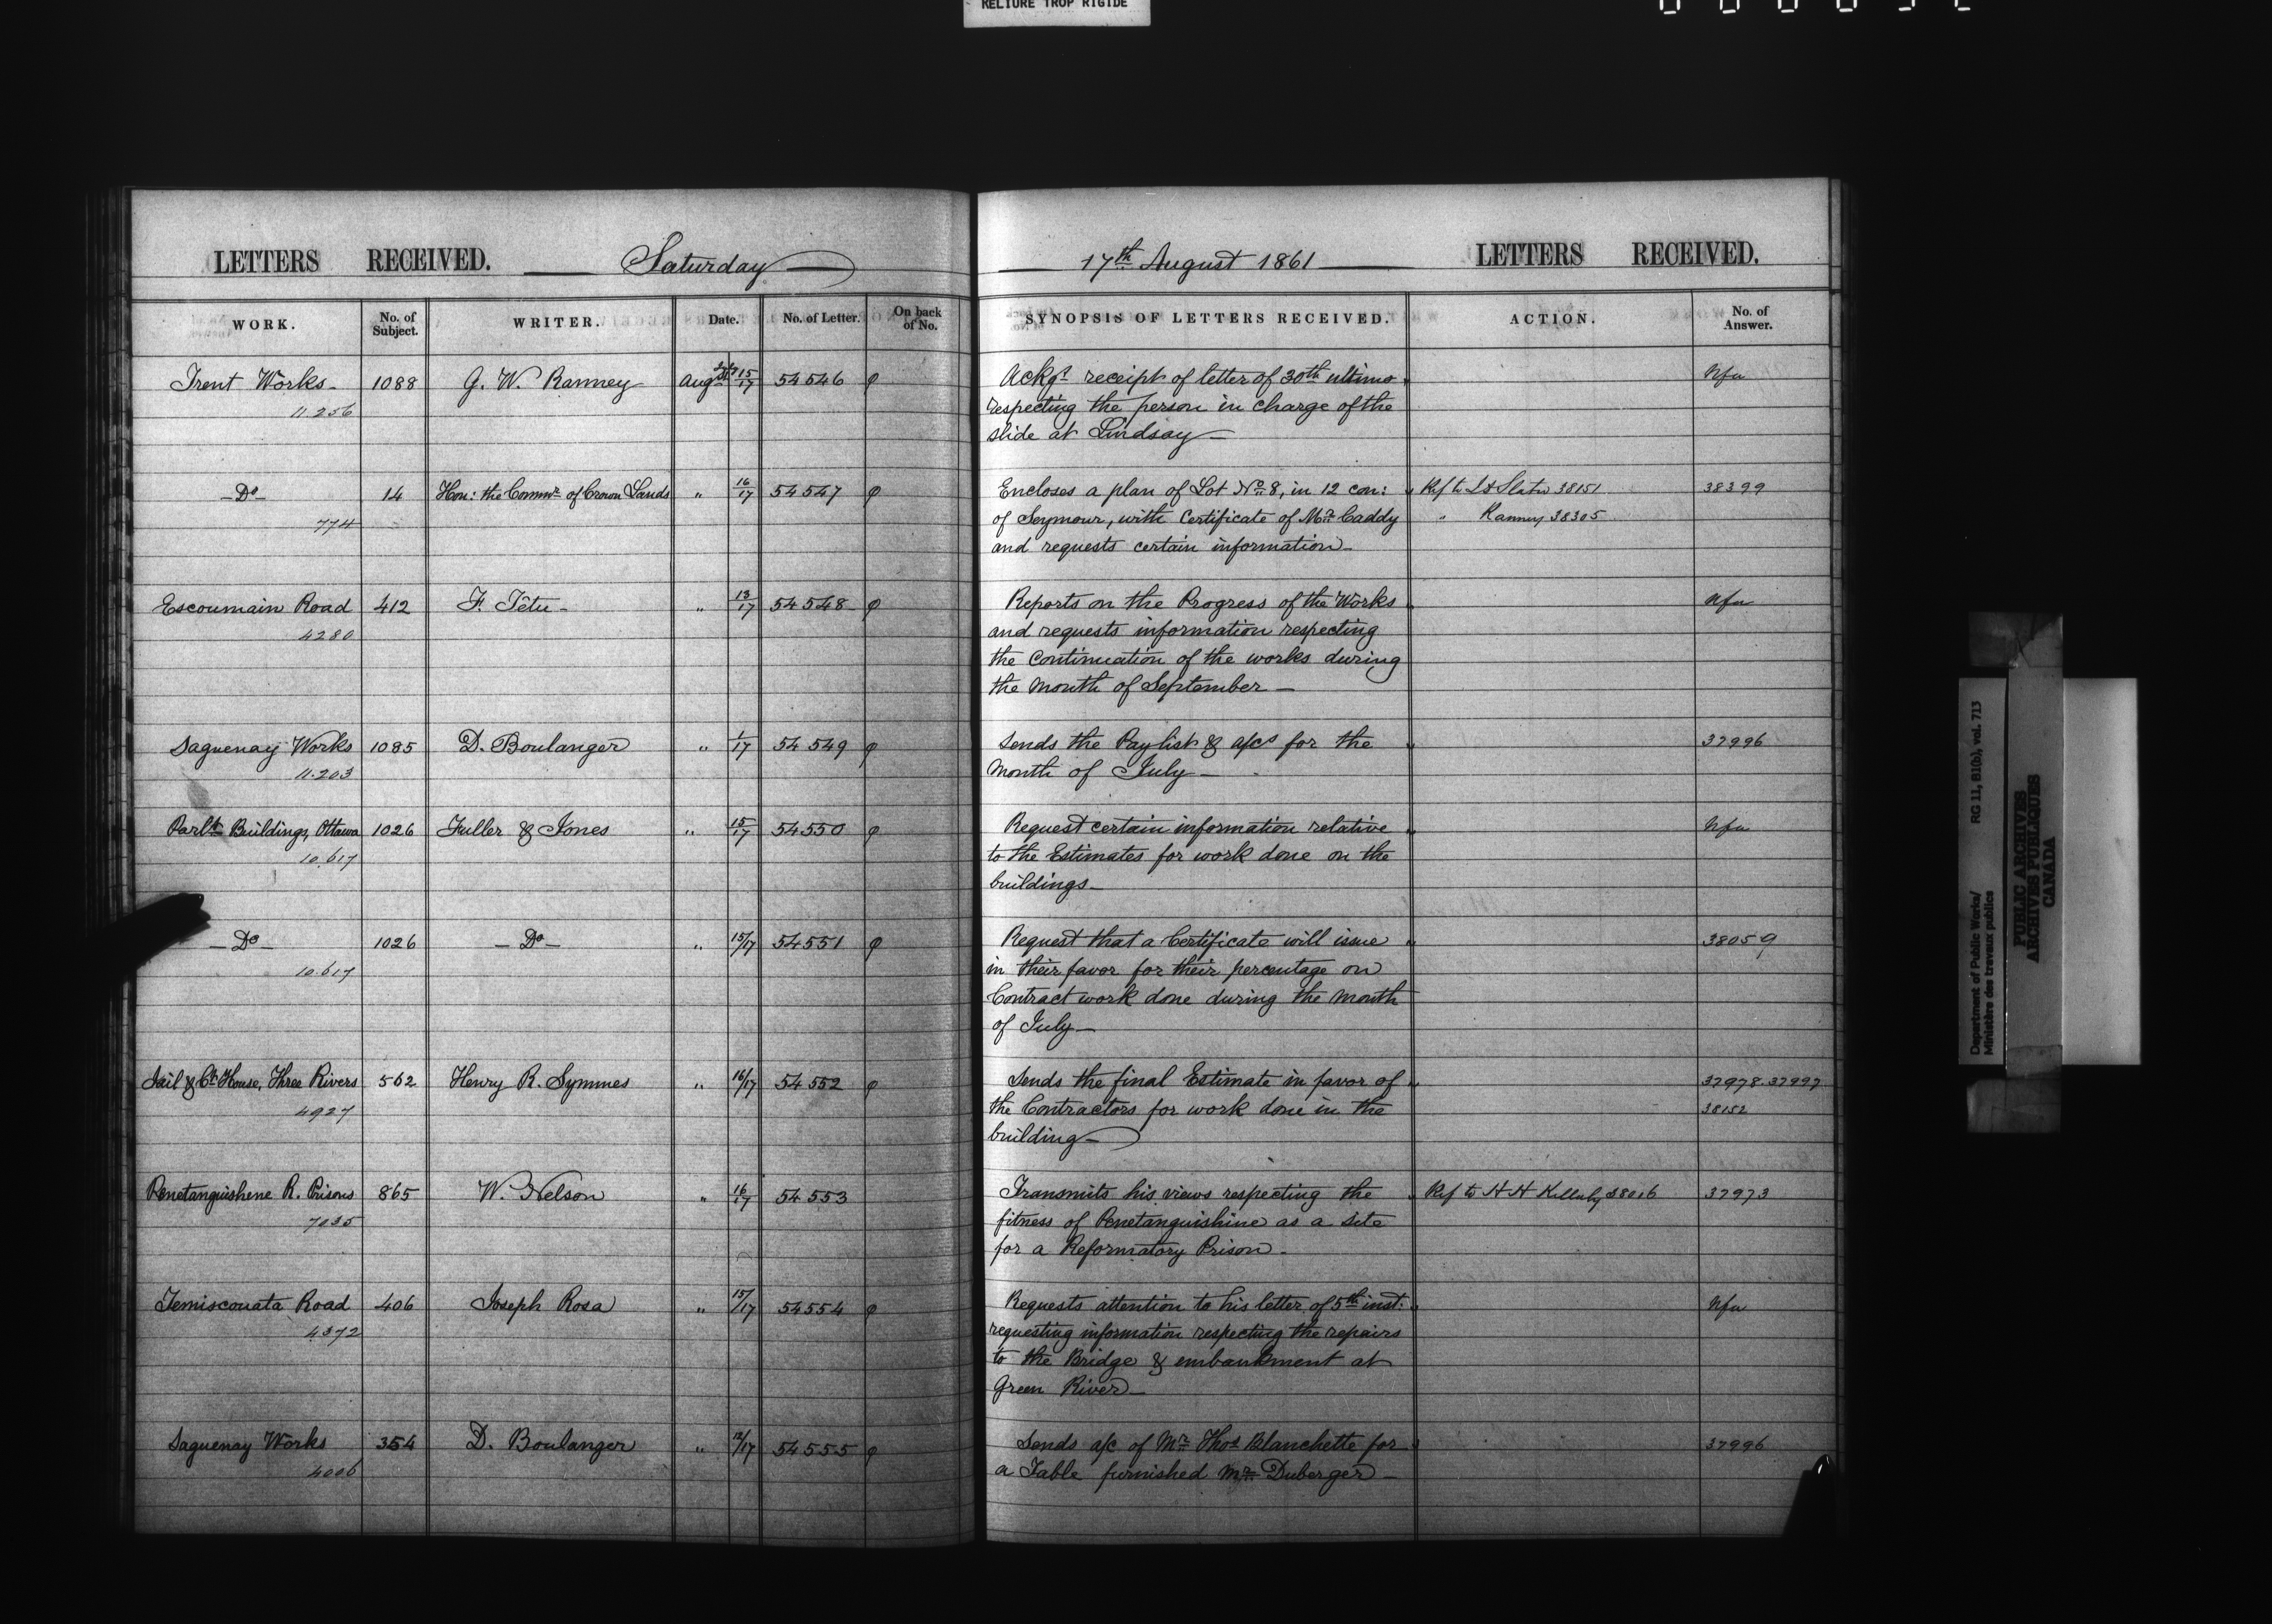 RELIURE TROP RIGIDE
LETTERS RECEIVED. Saturday
WORK. No. of Subject. WRITER. Date. No. of Letter. On back of No.
Trent Works 1088 G. W. Ranney Augst 15/17 54546 φ
11.256
Do 14 Hon: the Commr of Crown Lands " 16/17 54547 φ
774
Escoumain Road 412 F. Têtu " 13/17 54548 φ
4280
Saguenay Works 1085 D. Boulanger " 1/17 54549 φ
11.203
Parlt Buildings, Ottawa 1026 Fuller & Jones " 15/17 54550 φ
10.617
Do 1026 Do " 15/17 54551 φ
10.617
Jail & Ct House, Three Rivers 562 Henry R. Symmes " 16/17 54552 φ
4927
Penetanguishene R. Prisons 865 W. Nelson " 16/17 54553
7035
Temiscouata Road 406 Joseph Rosa " 15/17 54554 φ
4372
Saguenay Works 354 D. Boulanger " 12/17 54555 φ
4006
17th August 1861 LETTERS RECEIVED.
SYNOPSIS OF LETTERS RECEIVED. ACTION. No. of Answer.
Ackgs receipt of letter of 30th ultimo Nfa
respecting the person in charge of the
slide at Lindsay
Encloses a plan of Lot No 8, in 12 con: Ref to Slater 38151 38399
of Seymour, with Certificate of Mr Caddy " Ranney 38305
and requests certain information
Reports on the Progress of the Works Nfa
and requests information respecting
the continuation of the works during
the month of September
Sends the Paylist & a/cs for the 37996
month of July
Request certain information relative Nfa
to the Estimates for work done on the
buildings
Request that a Certificate will issue 38059
in their favor for their percentage on
Contract work done during the month
of July
Sends the final Estimate in favor of 37978.37997
the Contractors for work done in the 38152
building
Transmits his views respecting the Ref to H H Killaly 38016 37973
fitness of Penetanguishine as a site
for a Reformatory Prison
Requests attention to his letter of 5th inst: Nfa
requesting information respecting the repairs
to the Bridge & embankment at
Green River
Sends a/c of Mr Thos Blanchette for 37996
a Table furnished Mr Duberger
Department of Public Works/ RG 11, B1(b), vol. 713
Ministère des travaux publics
PUBLIC ARCHIVES
ARCHIVES PUBLIQUES
CANADA